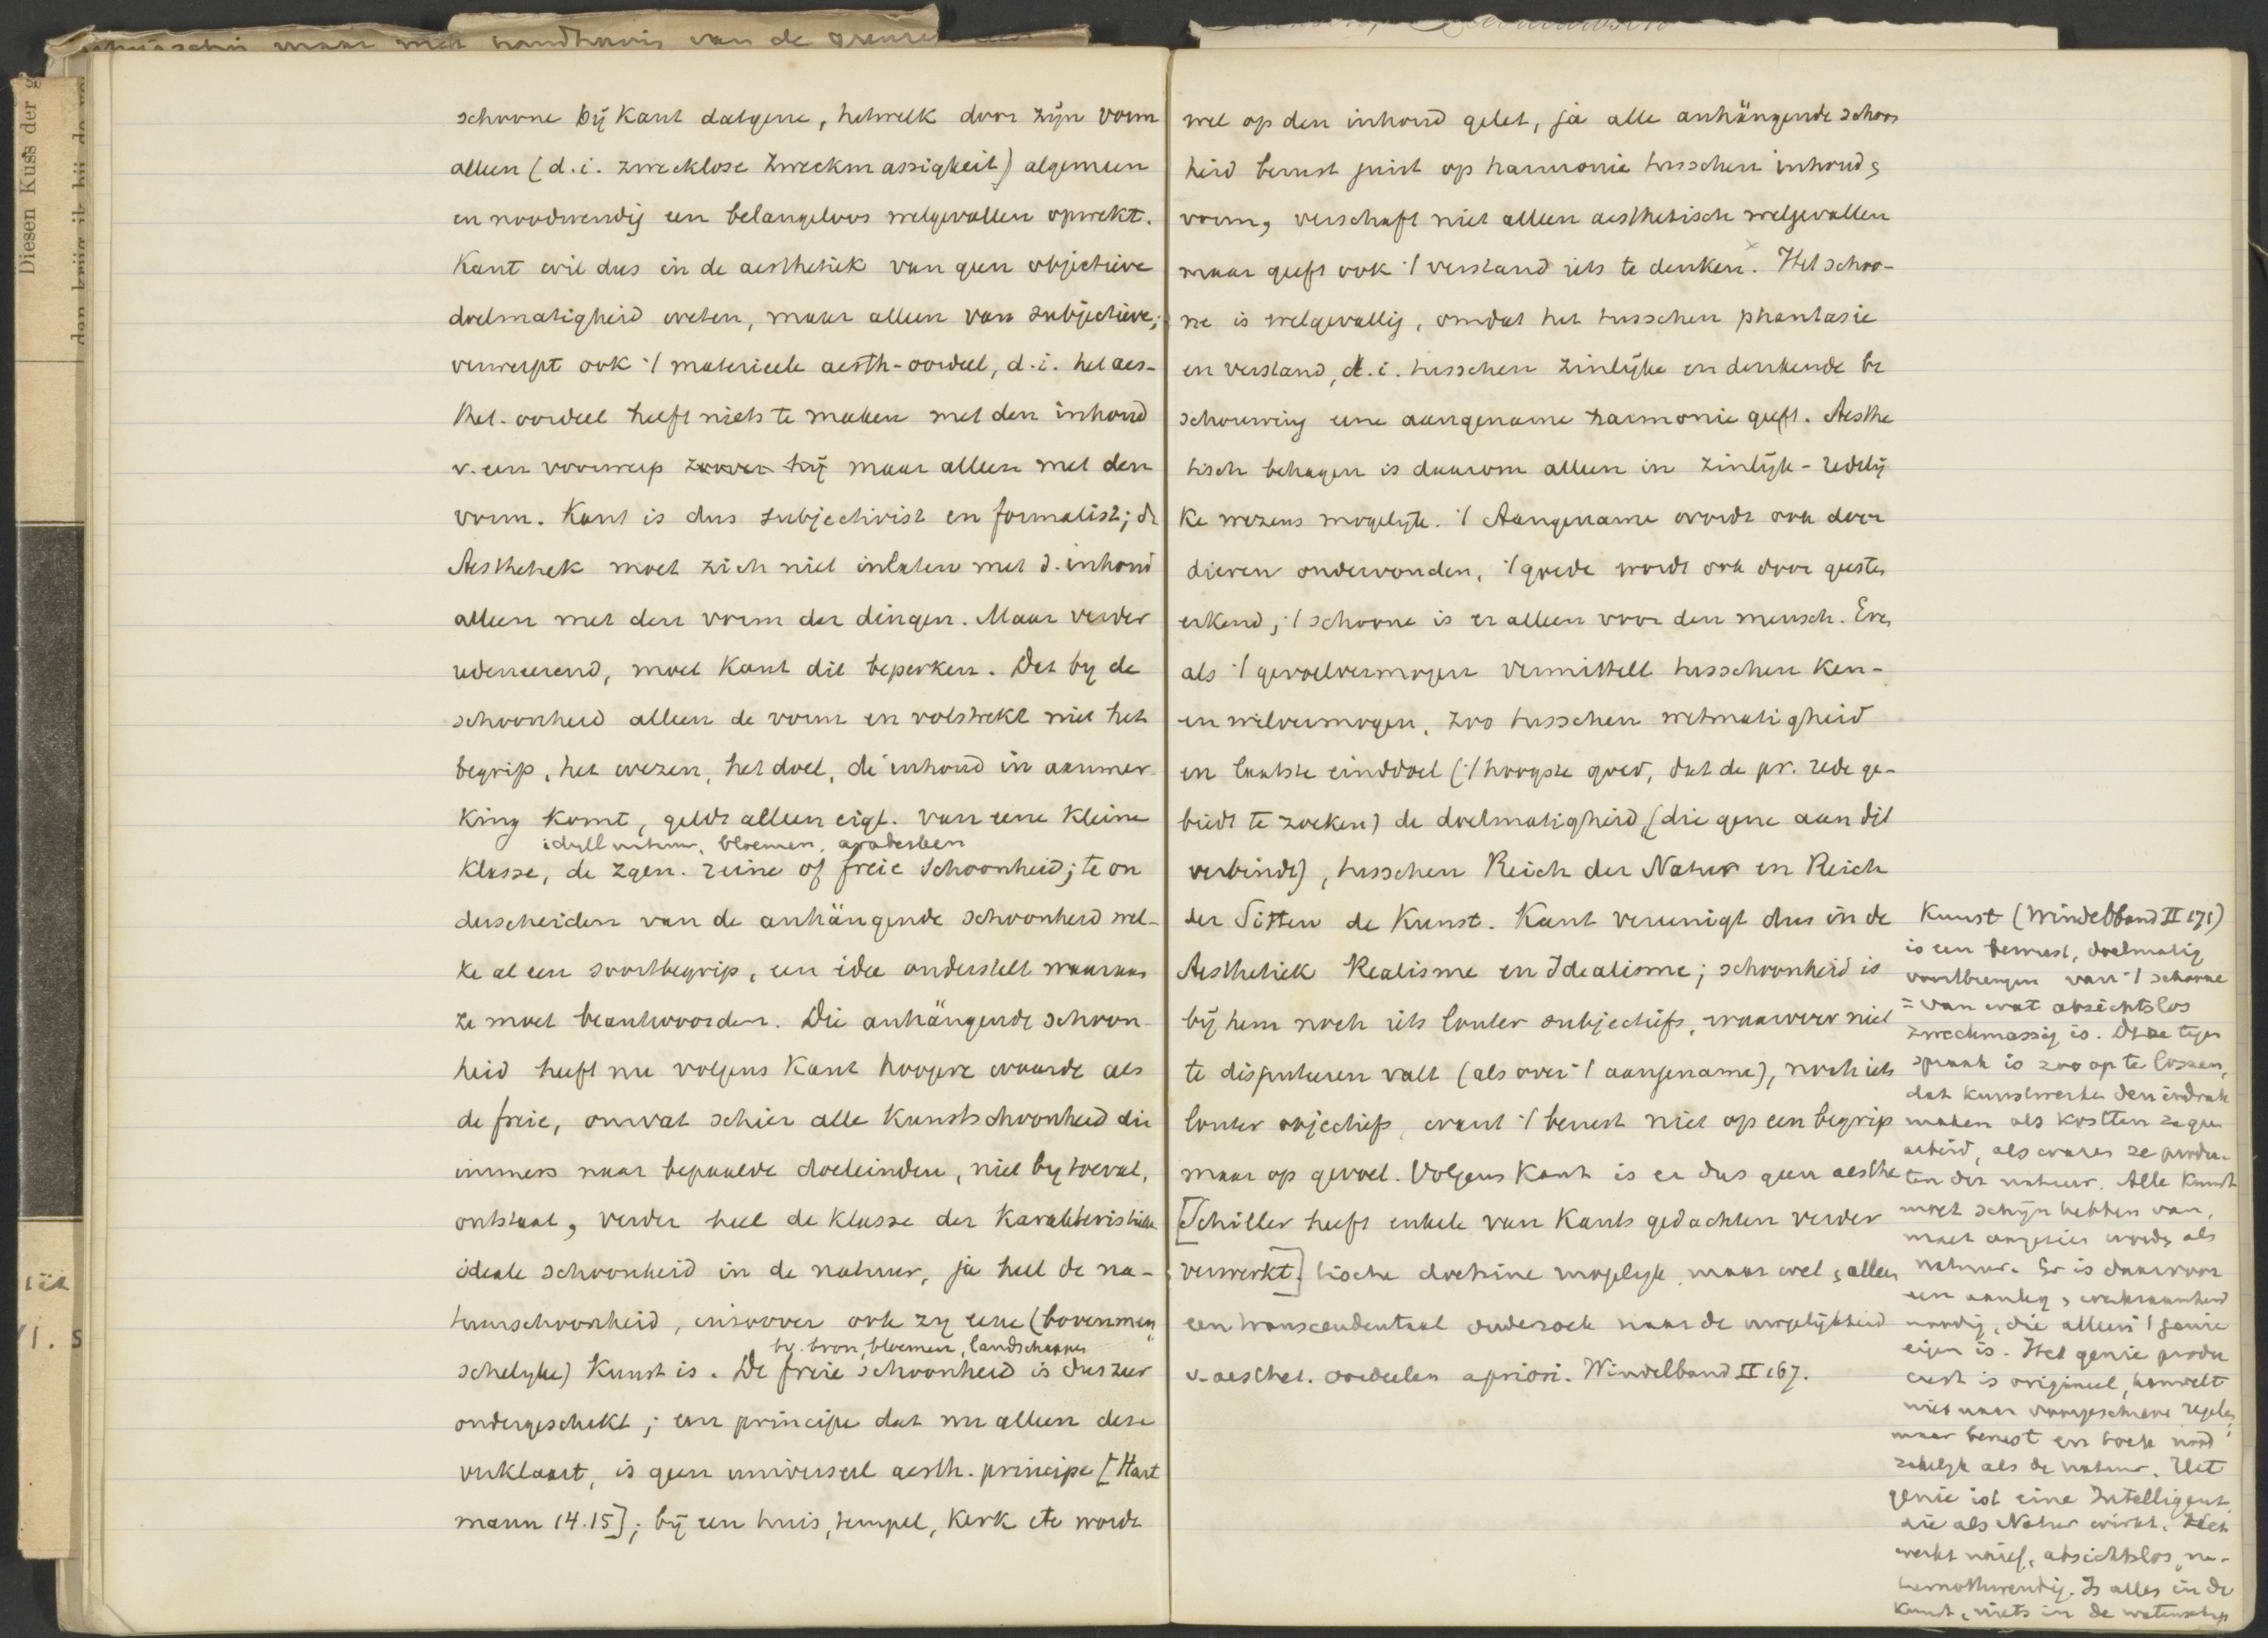 schoone bij Kant datgene, hetwelk door zijn vorm
alleen (d.i. zwecklose Zweckmassigkeit) algemeen
en noodwendig een belangeloos welgevallen opwekt.
Kant wil dus in de aesthetiek van geen objectieve
doelmatigheid weten, maar alleen van subjectieve;
verwerpt ook '/ materieele aesth-oordeel, d.i. het aes-
thet. oordeel heeft niets te maken met den inhoud
v. een voorwerp maar alleen met den
vorm. Kant is dus subjectivist en formalist; de
Aesthetiek moet zich niet inlaten met d. inhoud
alleen met den vorm der dingen. Maar verder
redeneerend, moet Kant dit beperken. Dat by de
schoonheid alleen de vorm en volstrekt niet het
begrip, het wezen, het doel, de inhoud in aanmer-
king komt, geldt alleen eigl. van eene kleine
idyll natuur, bloemen, arabesken
klasse, de zgen. reine of freie schoonheid; te on
derscheiden van de anhängende schoonheid wel-
ke al een soortbegrip, een idee onderstelt waaraan
ze moet beantwoorden. Die anhängende schoon-
heid heeft nu volgens Kant hoogere waarde als
de freie, omvat schier alle kunstschoonheid die
immers naar bepaalde doeleinden, niet by toeval,
ontstaat, verder heel de klasse der karakteristieke
ideale schoonheid in de natuur, ja heel de na-
tuurschoonheid, inzoover ook zy eene (bovenmen
bv. bron, bloemen, landschappen
schelyke) Kunst is. De freie schoonheid is dus zeer
ondergeschikt; een principe dat nu alleen deze
verklaart, is geen universeel aesth. principe [Hart
mann 14.15]; bij een huis, tempel, kerk etc wordt
wel op den inhoud gelet, ja alle anhängende schoon
heid berust juist op harmonie tusschen inhoud &
vorm, verschaft niet alleen aesthetisch welgevallen
maar geeft ook '/ verstand iets te denken. Het schoo-
ne is welgevallig, omdat het tusschen phantasie
en verstand, d.i. tusschen zinlijke en denkende be
schouwing eene aangename harmonie geeft. Aesthe
tisch behagen is daarom alleen in zinlijk-redelij
ke wezens mogelyk. '/ Aangename wordt ook door
dieren ondervonden, '/ goede wordt ook door geesten
erkend, '/ schoone is er alleen voor den mensch. Even
als '/ gevoelvermogen vermittelt tusschen ken-
en wilvermogen, zoo tusschen wetmatigheid
en laatste einddoel ('/ hoogste goed, dat de pr. rede ge-
biedt te zoeken) de doelmatigheid, (die gene aan dit
verbindt), tusschen Reich der Natur en Reich
der Sitten de Kunst. Kant vereenigt dus in de
Aesthetiek Realisme en Idealisme; schoonheid is
bij hem noch iets louter subjectiefs, waarover niet
te disputeren valt (als over '/ aangename), noch iets
louter objectiefs, want '/ berust niet op een begrip
maar op gevoel. Volgens Kant is er dus geen aesthe
[Schiller heeft enkele van Kants gedachten verder
verwerkt] tische doctrine mogelyk, maar wel & alleen
een transcendentaal onderzoek naar de mogelijkheid
v. aesthet. oordeelen apriori. Windelband II 167.
Kunst (Windelband II 171)
is een bewust, doelmatig
voortbrengen van '/ schoone
= van wat absichtslos
zweckmassig is. Deze tegen
spraak is zoo op te lossen,
dat kunstwerken den indruk
maken als kostten ze geen
arbeid, als waren ze produc-
ten der natuur. Alle kunst
moet schijn hebben van,
moet aangezien worden als
natuur. Er is daarvoor
een aanleg & werkzaamheid
noodig, die alleen '/ genie
eigen is. Het genie produ
ceert is origineel, handelt
niet naar voorgeschreven regelen,
maar bewust en toch nood
zakelyk als de natuur. Het
genie ist eine Intelligenz
die als Natur wirkt. Het
werkt naief, absichtslos, na-
turnothwendig. Is alles in de
kunst, niets in de wetenschap
Diesen Kuss der g